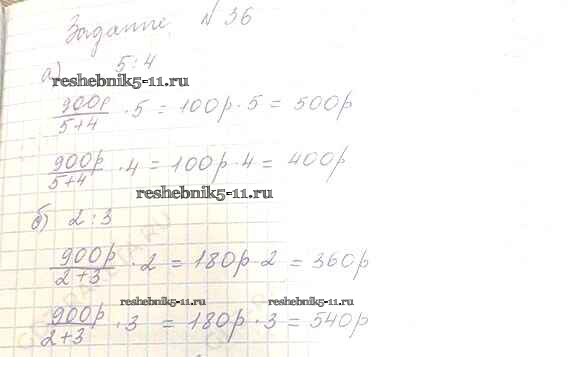 Задание № 36
а) 5:4
reshebnik5-11.ru
900р/5+4 · 5 = 100р · 5 = 500р
900р/5+4 · 4 = 100р · 4 = 400р
reshebnik5-11.ru
б) 2:3
900р/2+3 · 2 = 180р · 2 = 360р
reshebnik5-11.ru reshebnik5-11.ru
900р/2+3 · 3 = 180р · 3 = 540р